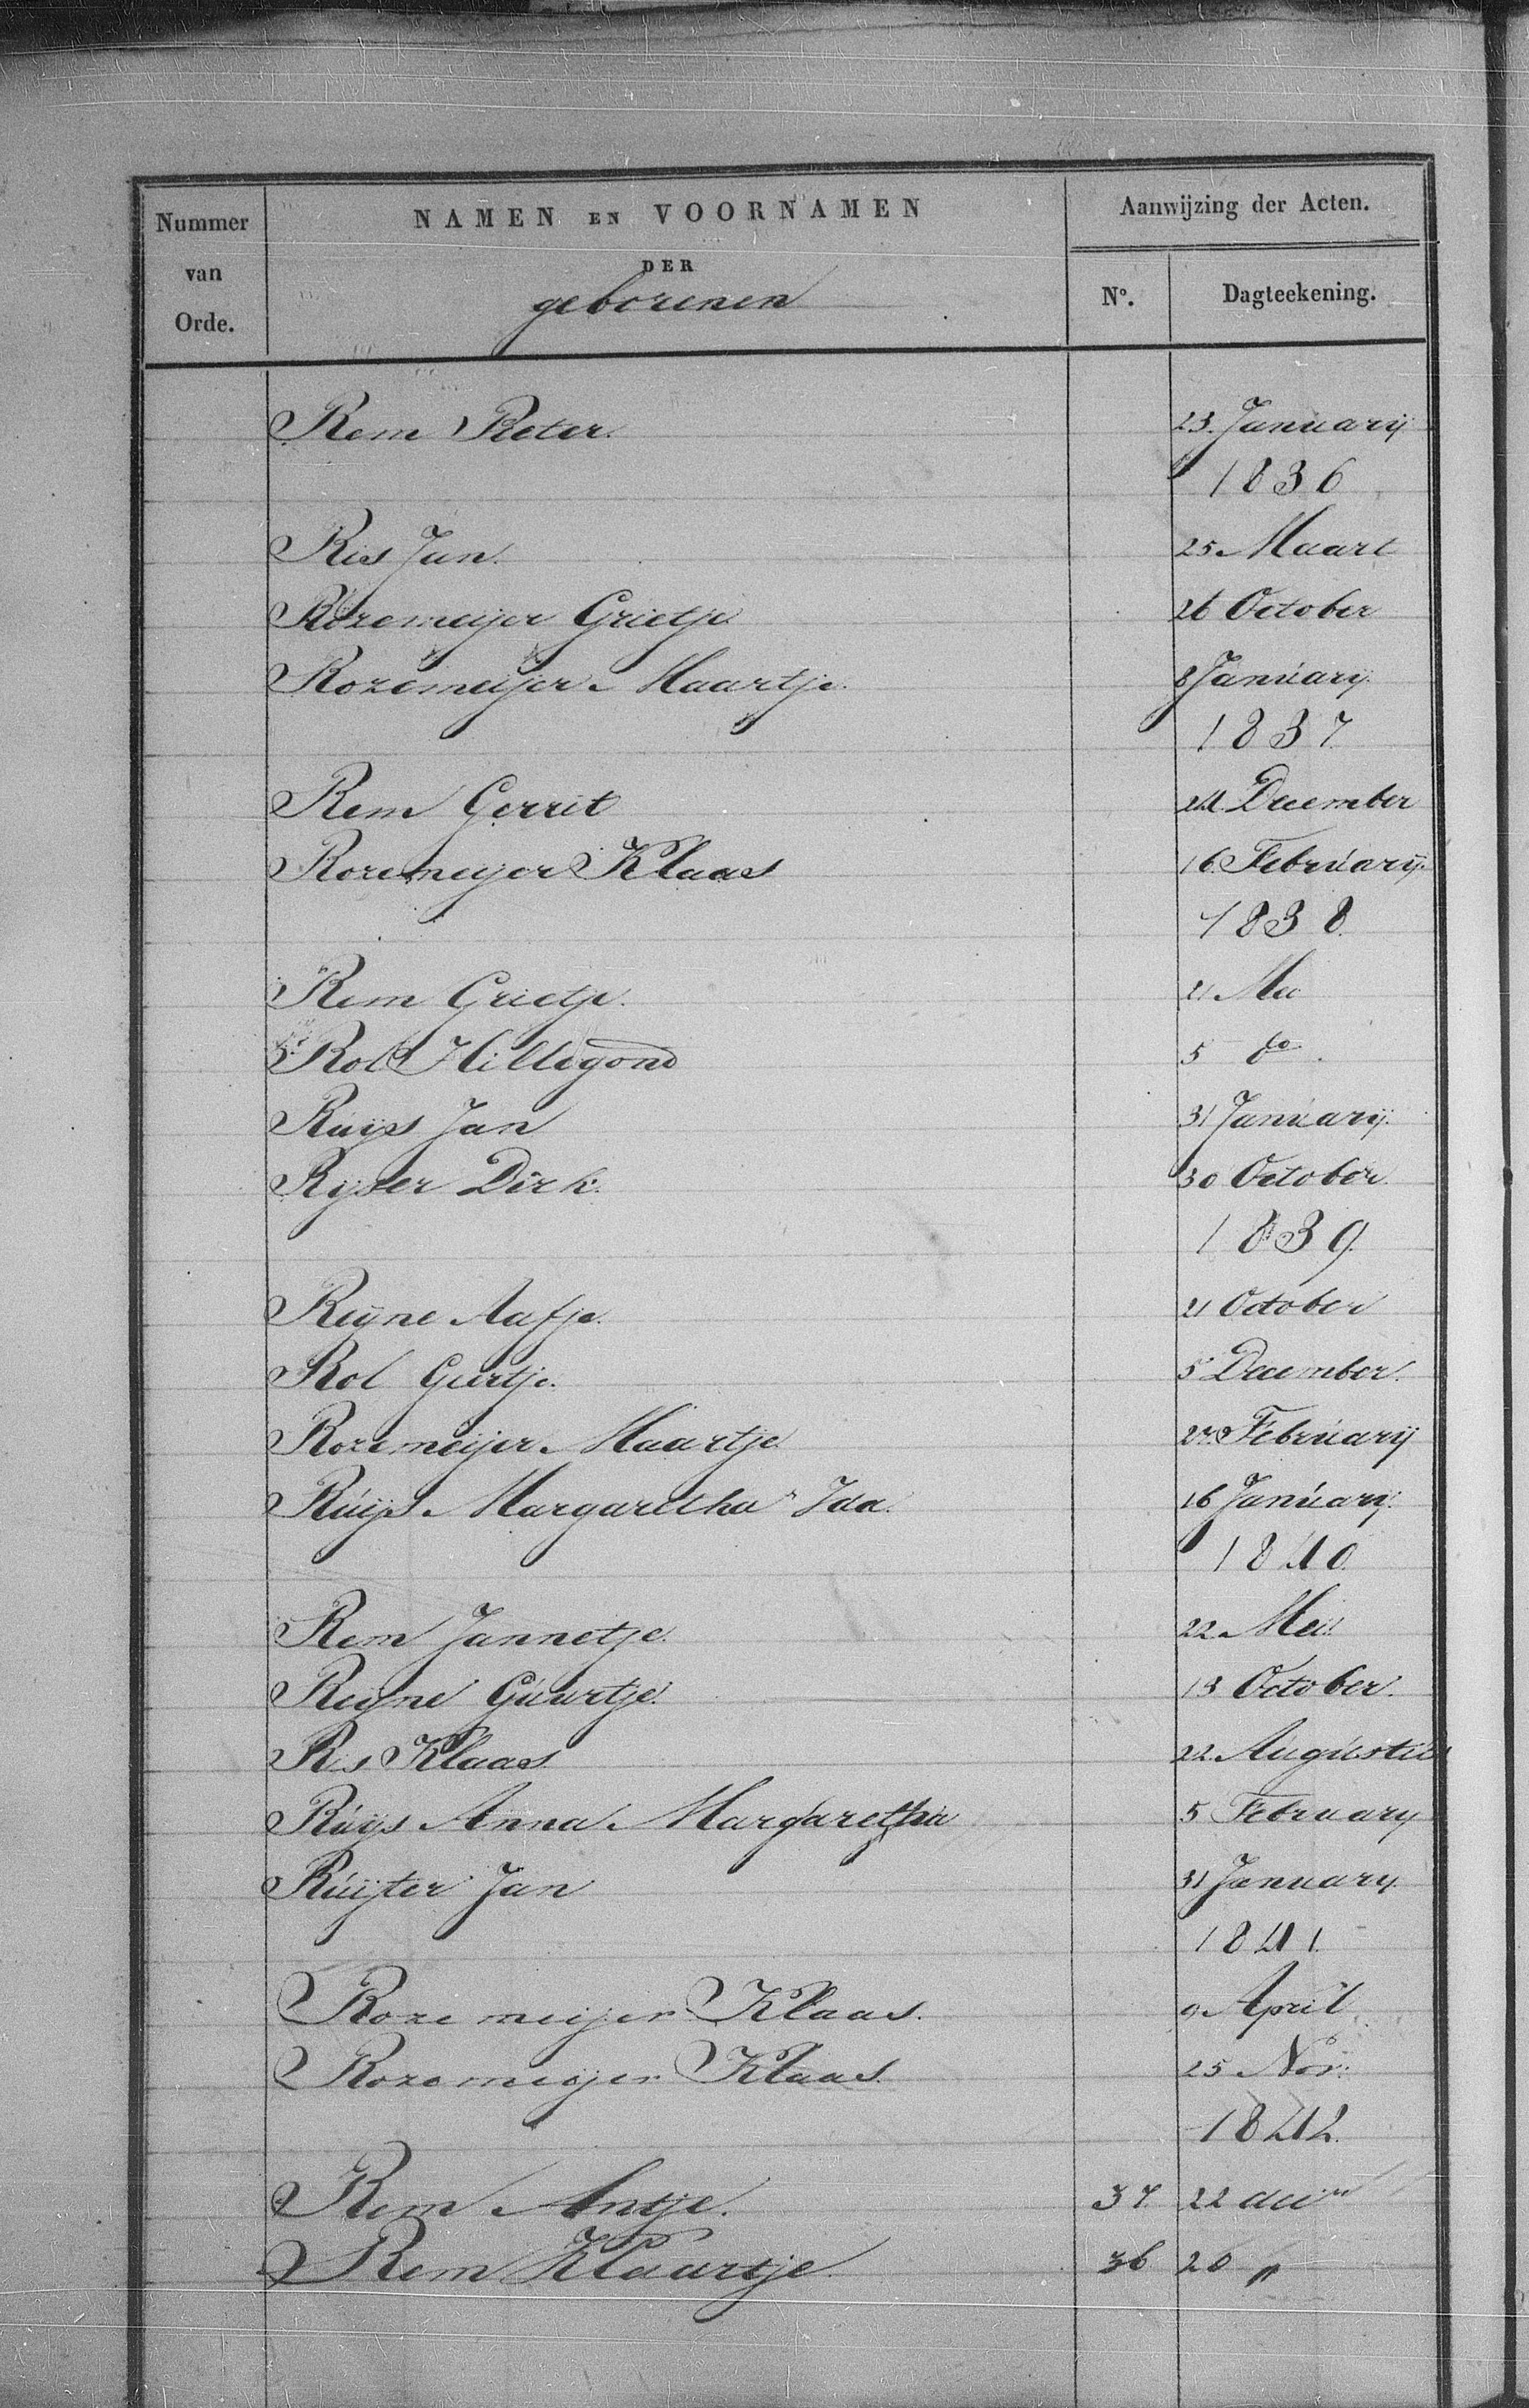 Nummer van Orde.
NAMEN EN VOORNAMEN
DER
geborenen
Aanwijzing der Acten.
No.
Dagteekening.
Rem Pieter. 23. Januarij
1836
Ris Jan. 25 Maart
Rozemeijer Grietje 26 October
Rozemeijer Maartje. 8 Januarij.
1837.
Rem Gerrit 24. December
Rozemeijer Klaas 16. Februarij.
1838.
Rem Grietje. 21 Mei
Rol Hillegond 5 do.
Ruijs Jan 31 Januarij.
Ryser Dirk. 30 October.
1839.
Reijne Aafje. 21 October
Rol Geertje. 5 December.
Rozemeijer Maartje 27. Februarij
Ruijs Margaretha Ida. 16 Januarij.
1840.
Rem Jannetje. 22 Mei
Reijne Guurtje. 13 October.
Ris Klaas 22 Augustus
Ruijs Anna Margaretha 5 February
Ruijter Jan 31 January.
1841.
Rozemeijer Klaas. 9 April
Rozemeijer Klaas. 25 Nov:
1842.
Rem Antje. 37. 22 decm
Rem Klaartje 36 20 "